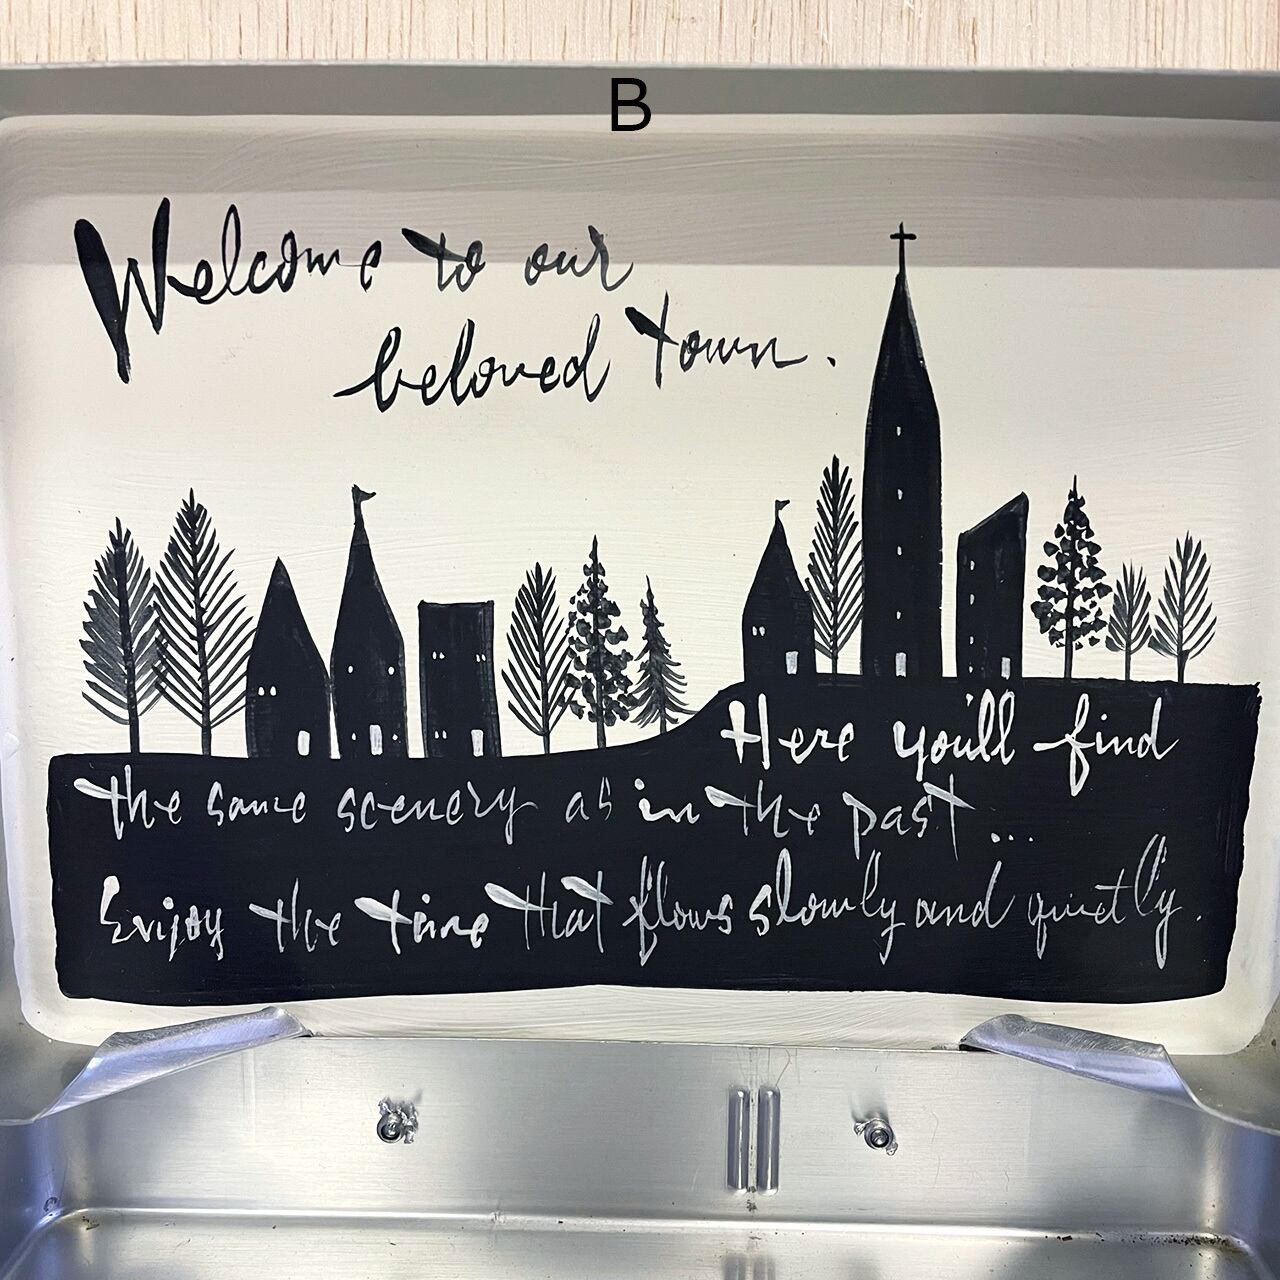 B
Welcome to our
beloved town.
Here you'll find
the same scenery as in the past...
Enjoy the time that flows slowly and quietly.